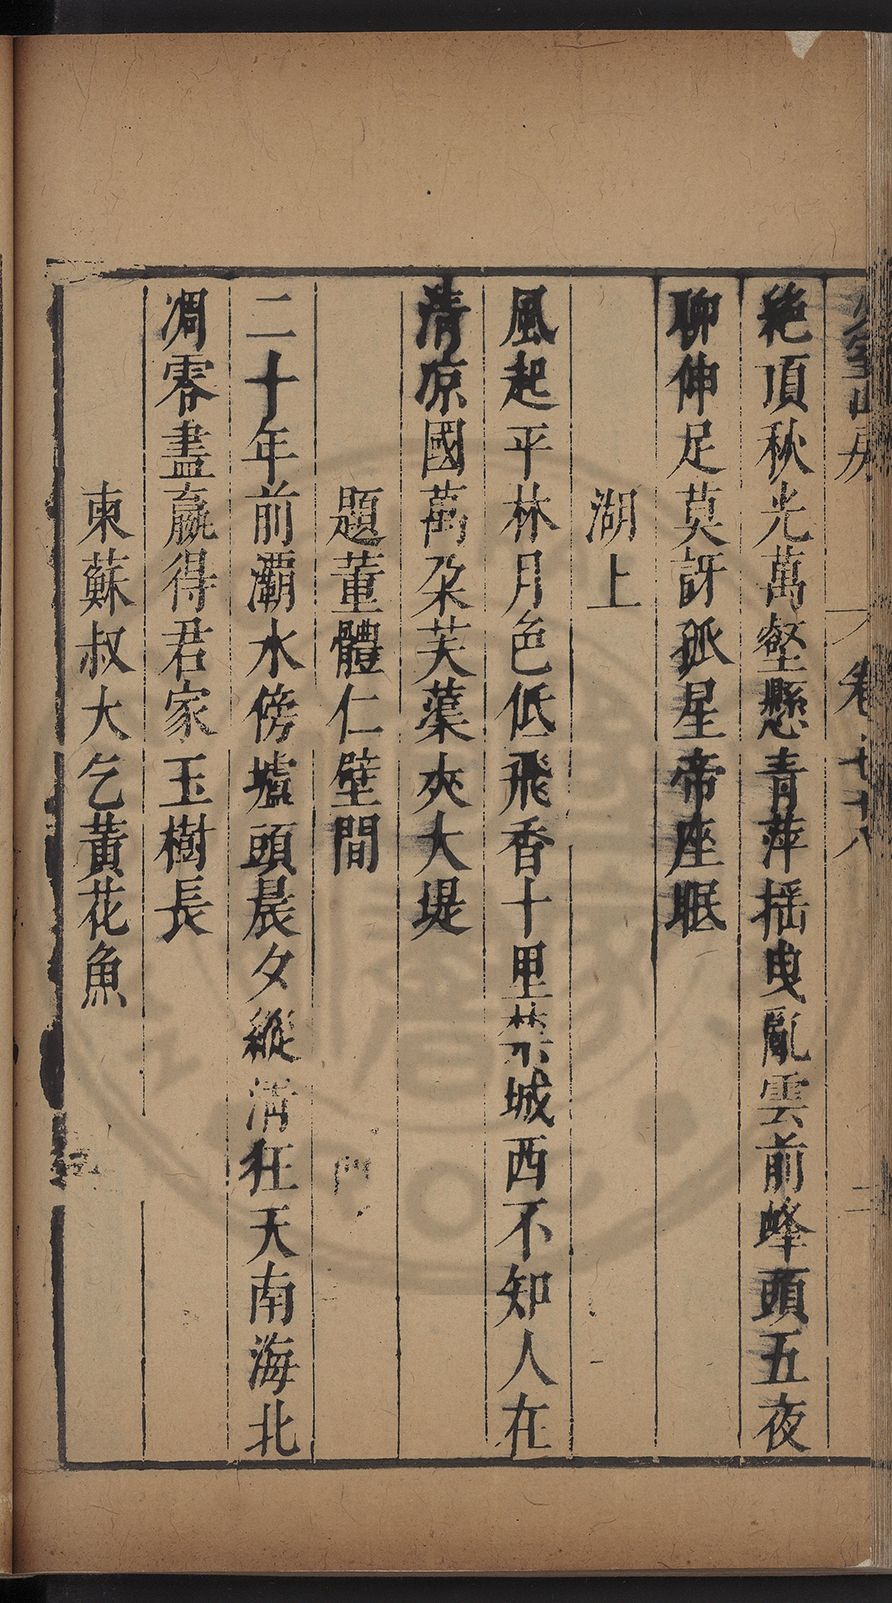 卷七十八
二
絶頂秋光萬壑懸青萍揺曳亂雲前峰頭五夜
聊伸足莫訝孤星帝座眠
湖上
風起平林月色低飛香十里禁城西不知人在
清凉國萬朶芙蕖夾大堤
題董體仁壁間
二十年前灞水傍壚頭晨夕縱清狂天南海北
凋零盡嬴得君家玉樹長
柬蘇叔大乞黃花魚